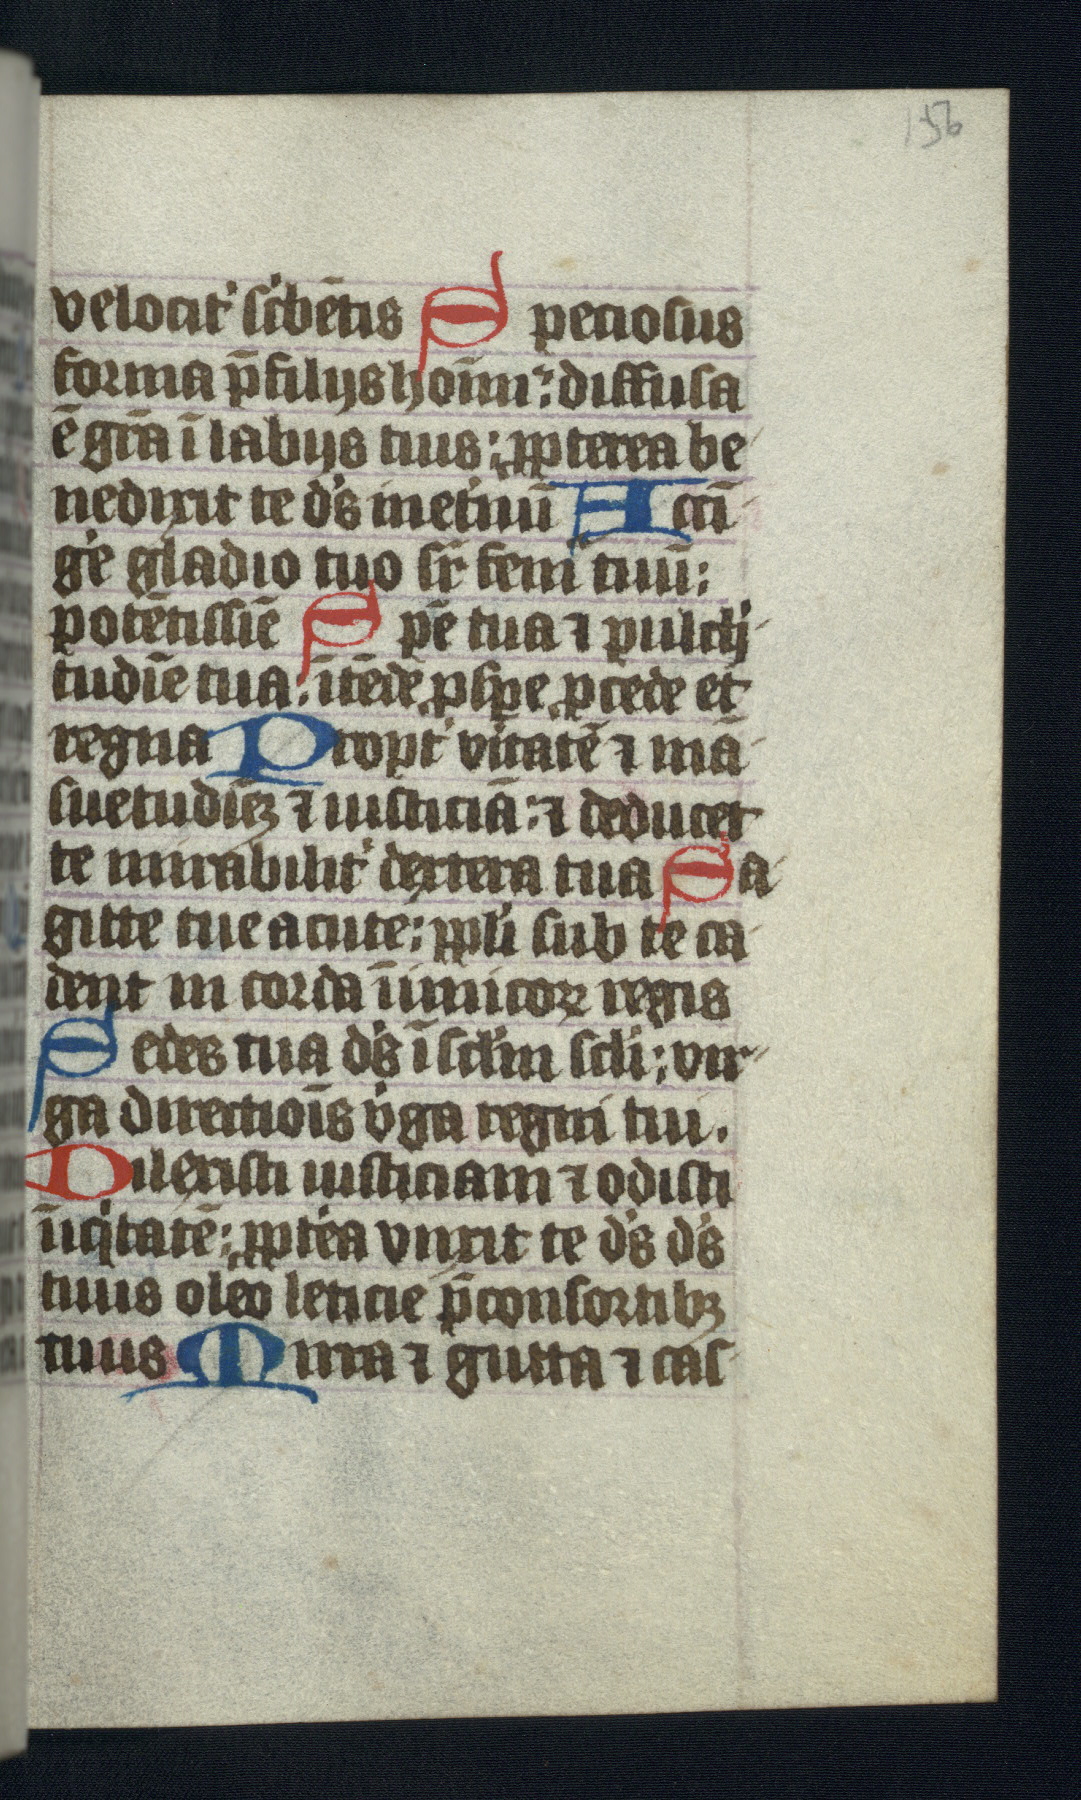 156
velocit' sc'bētis Speciosus
forma p̄ filijs hoīm: diffusa
ē gr̄a ī labijs tuis: ꝓpterea be
nedixit te d's inet'nū Acci
g'e gladio tuo sr̄ femˉ tuū:
potētissīe Spē tua ⁊ pulch'i
tudīe tua: ītēde ꝓspe ꝓcede et
regna Propt' v'itatē ⁊ mā
suetudīeꝫ ⁊ iusticiā: ⁊ deducet
te mirabilit' dextera tua Sa
gitte tue acute: ꝓpli sub te ca
dent in corda īimicoꝝ regis
Sedes tua d's ī sc'lm sc'li: vir
ga directiōis v'ga regni tui.
Dilexisti iusticiam ⁊ odisti
īiq'tatē: ꝓpt'ea vnxit te d's d's
tuus oleo leticie p̄ consortibꝫ
tuis Mirra ⁊ gutta ⁊ cas